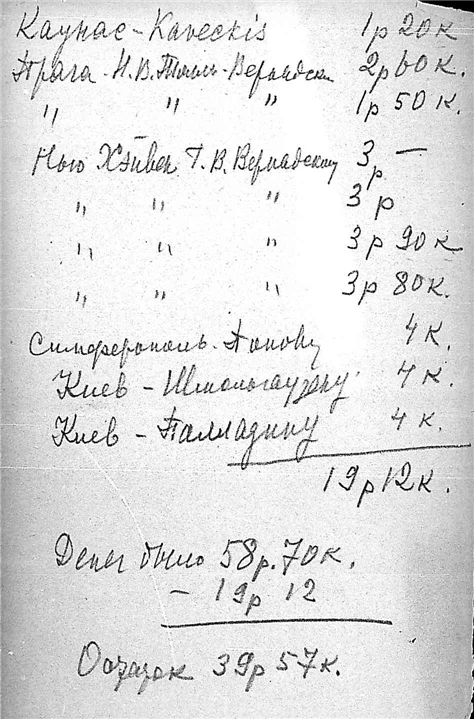 Каунас - Kaveckis 1р 20к
Прага - Н.В. Толль-Вернадск 2р 60к.
" " " 1р 50к.
Нью Хэйвен Г.В. Вернадскому 3р —
" " " 3р
" " " 3р 90к
" " " 3р 80к.
Симферополь - Попову 4к.
Киев - Шмальгаузену 4к.
Киев - Палладину 4к.
19р 12к.
Денег было 58р. 70к.
- 19р 12
Остаток 39р 57к.